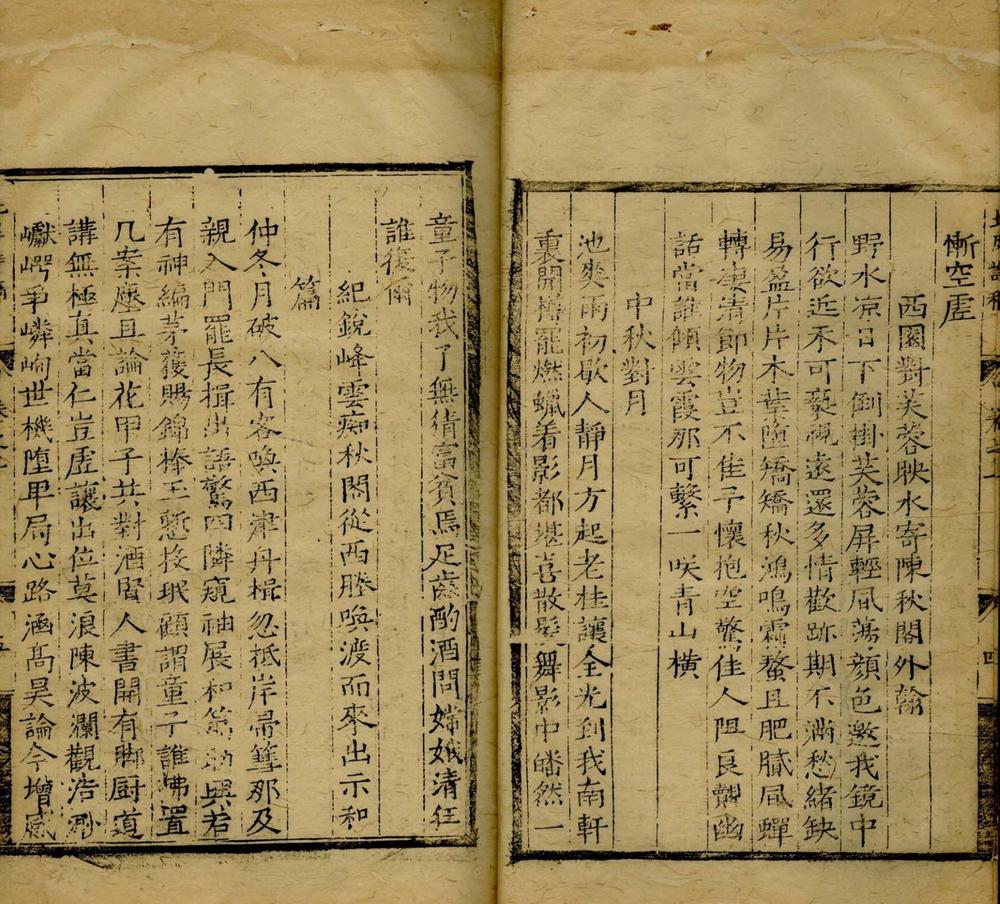 慚空虗
西園對芙蓉映水寄陳秋閣外翰
野水凉日下倒掛芙蓉屏輕風蕩顔色邀我鏡中
行欲近禾可褻視遠還多情歡跡期不滿愁緒鈌
易盈片片木葉墮矯矯秋鴻鳴霜螯且肥膩風蟬
轉凄清節物豈不佳予懷抱空驚佳人阻良覿幽
話當誰傾雲霞那可繫一咲青山橫
中秋對月
池奕雨初歇人靜月方起老桂讓全光到我南軒
裏開樽罷燃蠟看影都堪喜散髮舞影中皤然一
童子物我了無猜富貧焉足齒酌酒問嫦娥清狂
誰復爾
紀銳峰雲痴秋閣從西塍喚渡而來出示和
篇
仲冬月破八有客喚西津舟楫忽柢岸帚篲那及
親入門罷長揖出語驚四隣窺神展和
興若
有神編茅獲賜錦捧玉慙投珉顧謂童子誰拂置
几案塵且論花甲子共對酒賢人書開有脚厨道
講無極真當仁豈虗讓出位莫浪陳波瀾觀浩渺
巘崿爭嶙峋世機墮甲局心路涵高旻論今增感